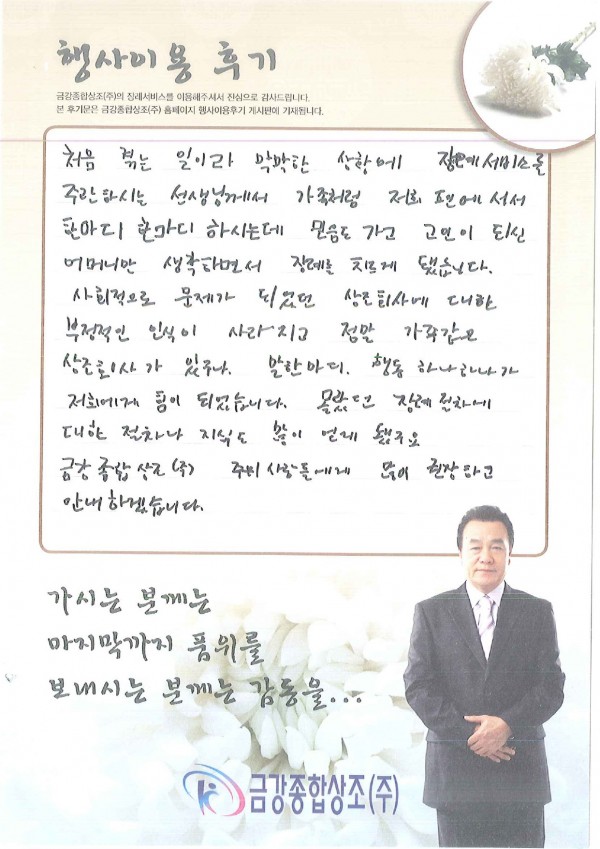 행사이용 후기
금강종합상조(주)의 장례서비스를 이용해주셔서 진심으로 감사드립니다.
본 후기문은 금강종합상조(주) 홈페이지 행사이용후기 게시판에 기재됩니다.
처음 겪는 일이라 막막한 상황에 장례서비스를
주관하시는 선생님께서 가족처럼 저희 편에 서서
한마디 한마디 하시는데 믿음도 가고 고인이 되신
어머니만 생각하면서 장례를 치르게 됐습니다.
사회적으로 문제가 되었던 상조회사에 대한
부정적인 인식이 사라지고 정말 가족같은
상조회사가 있구나. 말한마디. 행동 하나하나가
저희에게 힘이 되었습니다. 몰랐던 장례절차에
대한 절차나 지식도 많이 얻게 됐구요
금강종합상조(주) 주위 사람들에게 많이 권장하고
안내하겠습니다.
가시는 분께는
마지막까지 품위를
보내시는 분께는 감동을...
금강종합상조(주)